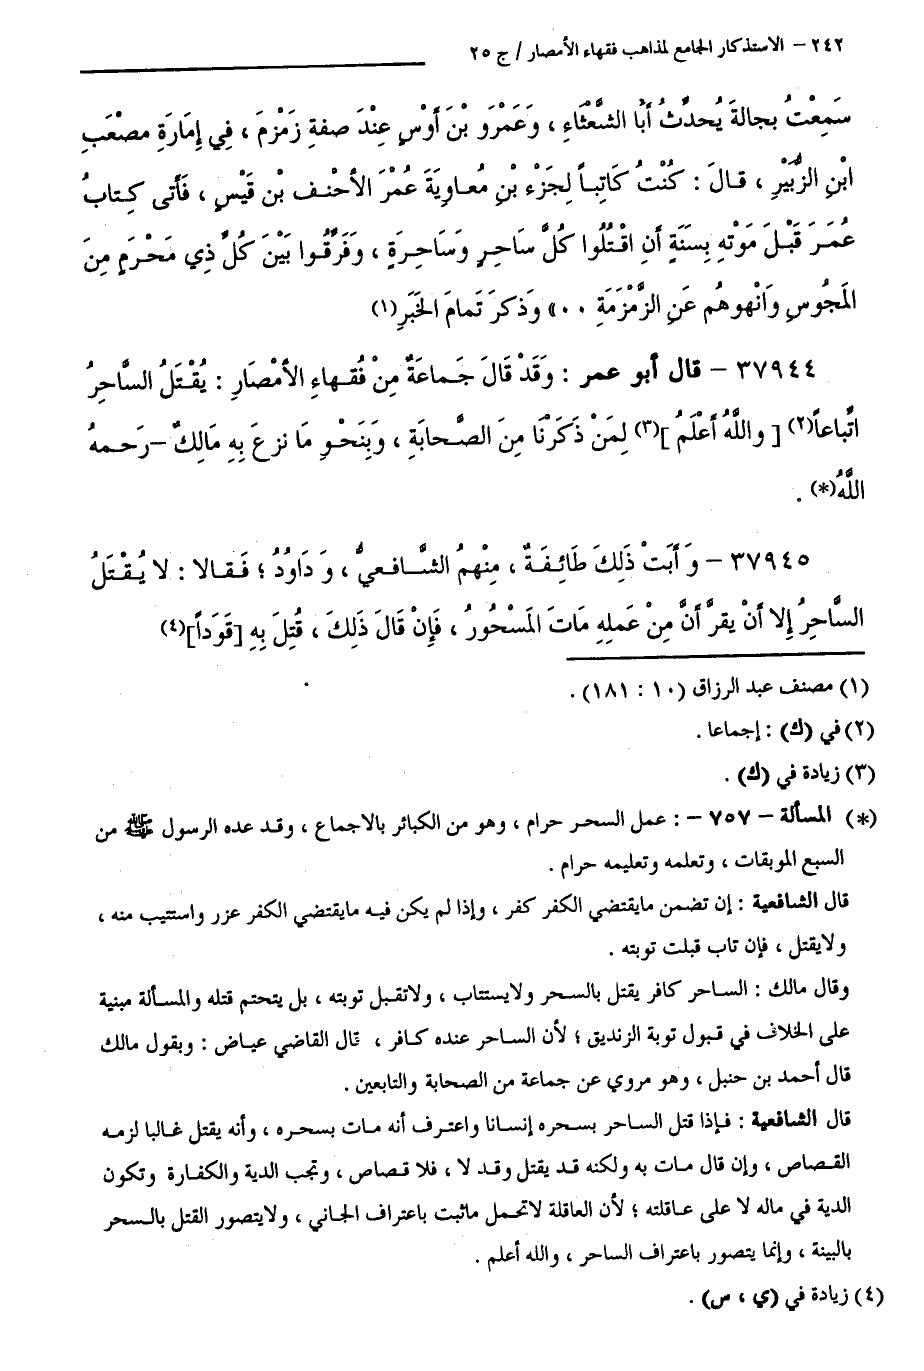 ٢٤٢ – الاستذكار الجامع لمذاهب فقهاء الأمصار / ج ٢٥
سَمِعْتُ بجالةَ يُحدِّثُ أبَا الشَّعْثَاءِ ، وَعَمْرَو بْنَ أَوْسٍ عِنْدَ صفةِ زَمْزمَ ، فِي إِمَارَةِ مصْعَبِ
ابْنِ الزُّبَيْرِ ، قالَ : كُنْتُ كَاتِباً لِجَزْء بْنِ مُعاوِيَةَ عُمْرَ الأحْنفِ بْن قَيْسٍ ، فَأتى كِتابُ
عُمَرَ قَبْلَ مَوْتهِ بِسَنَةٍ أن اقْتُلُوا كُلَّ سَاحِرٍ وسَاحِرَةٍ ، وَفَرِّقُوا بَيْنَ كُلِّ ذي مَحْرَمٍ مِنَ
المَجُوسِ وَانْهوهُم عَنِ الزَّمْزَمَةِ ..» وَذكرَ تَمامَ الخَبَرِ(١)
٣٧٩٤٤ – قال أبو عمر : وَقَدْ قَالَ جَماعَةٌ مِنْ فُقهاءِ الأمْصَارِ : يُقْتَلُ السَّاحِرُ
اتِّباعاً(٢) [ واللَّهُ أعْلَمُ ](٣) لِمَنْ ذَكَرْنَا مِنَ الصَّحابَةِ ، وَبِنَحْوِ مَا نزعَ بِهِ مَالِكٌ –رَحمهُ
اللَّهُ(*) .
٣٧٩٤٥ – وَأبَتْ ذَلِكَ طَائِفَةٌ ، مِنْهمُ الشَّافعيُّ ، وَدَاوُدُ ؛ فَقالا : لا يُقْتلُ
السَّاحِرُ إلا أنْ يقرَّ أنَّ مِنْ عَملِهِ مَاتَ المَسْحُورُ ، فَإنْ قَالَ ذَلِكَ ، قُتِلَ بِهِ [قَوَداً](٤)
(١) مصنف عبد الرزاق (١٠ : ١٨١) .
(٢) في (ك) : إجماعا .
(٣) زيادة في (ك) .
(*) المسألة – ٧٥٧ – : عمل السحر حرام ، وهو من الكبائر بالاجماع ، وقد عده الرسول ﷺ من
السبع الموبقات ، وتعلمه وتعليمه حرام .
قال الشافعية : إن تضمن مايقتضي الكفر كفر ، وإذا لم يكن فيه مايقتضي الكفر عزر واستتيب منه ،
ولايقتل ، فإن تاب قبلت توبته .
وقال مالك : الساحر كافر يقتل بالسحر ولايستتاب ، ولاتقبل توبته ، بل يتحتم قتله والمسألة مبنية
على الخلاف في قبول توبة الزنديق ؛ لأن الساحر عنده كافر ، قال القاضي عياض : وبقول مالك
قال أحمد بن حنبل ، وهو مروي عن جماعة من الصحابة والتابعين .
قال الشافعية : فإذا قتل الساحر بسحره إنسانا واعترف أنه مات بسحره ، وأنه يقتل غالبا لزمه
القصاص ، وإن قال مات به ولكنه قد يقتل وقد لا ، فلا قصاص ، وتجب الدية والكفارة وتكون
الدية في ماله لا على عاقلته ؛ لأن العاقلة لاتحمل ماثبت باعتراف الجاني ، ولايتصور القتل بالسحر
بالبينة ، وإنما يتصور باعتراف الساحر ، والله أعلم .
(٤) زيادة في (ي ، س) .